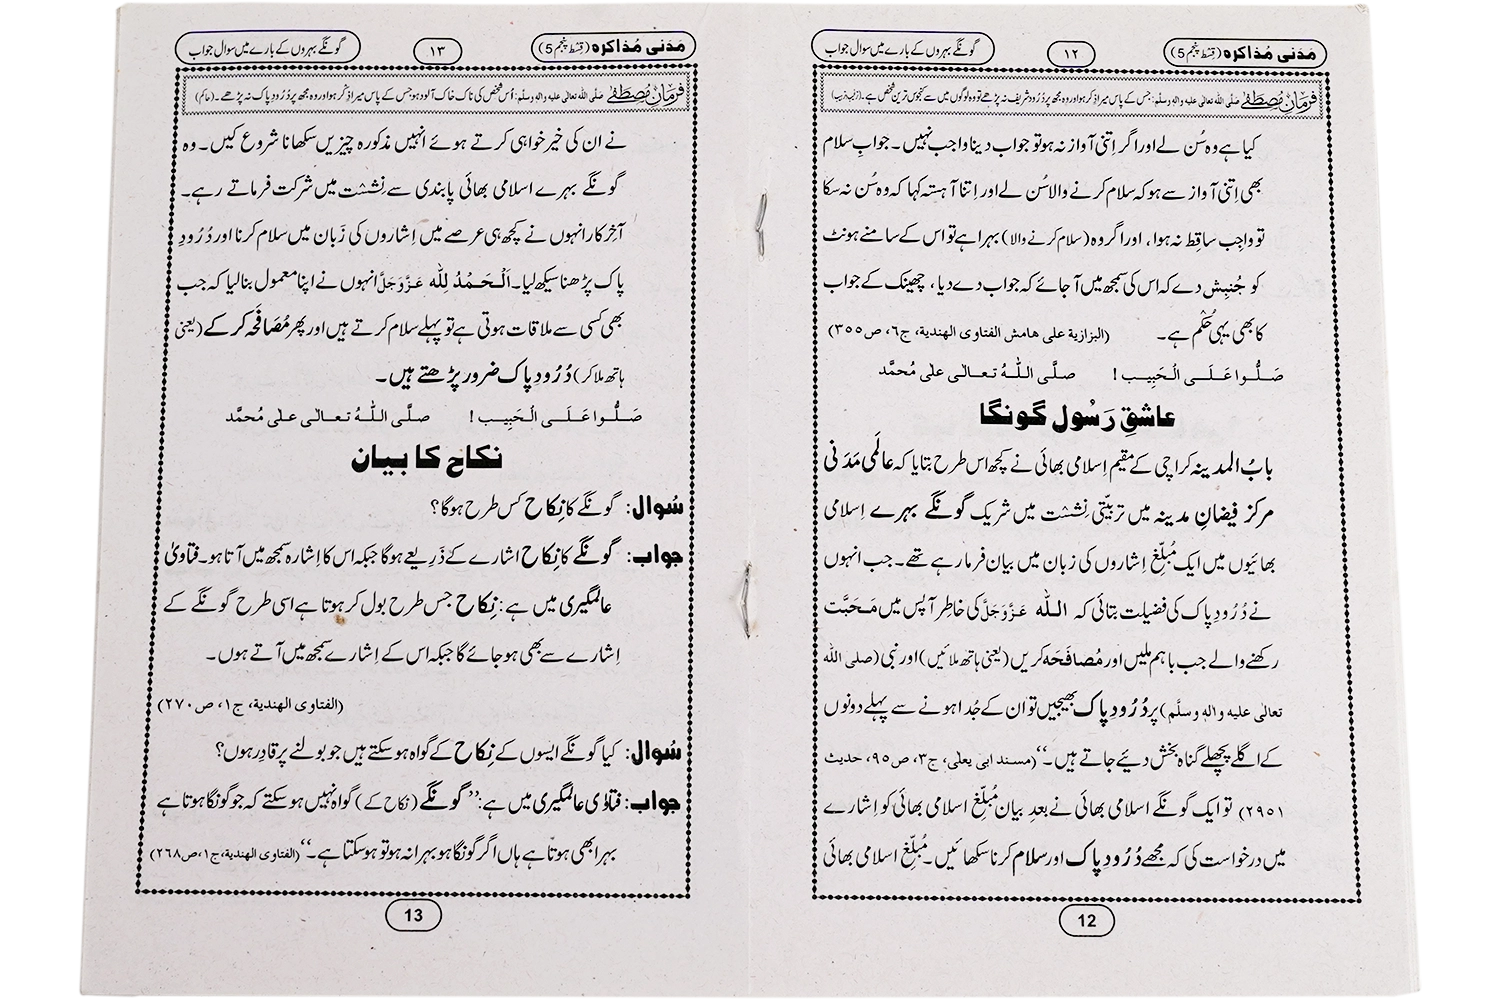 مَدَنی مُذاکرہ (قسط پنجم 5)
۱۲
گونگے بہروں کے بارے میں سوال جواب
فرمانِ مُصطَفٰے صلَّی اللہ تعالٰی علیہ والہٖ وسلَّم: جس کے پاس میرا ذکر ہو اور وہ مجھ پر دُرُود شریف نہ پڑھے تو وہ لوگوں میں سے کنجوس ترین شخص ہے۔ (ترغیب ترہیب)
کیا ہے وہ سُن لے اور اگر اِتنی آواز نہ ہو تو جواب دینا واجب نہیں۔ جوابِ سلام
بھی اِتنی آواز سے ہو کہ سلام کرنے والا سُن لے اور اِتنا آہستہ کہا کہ وہ سُن نہ سکا
تو واجِب ساقِط نہ ہوا، اور اگر وہ (سلام کرنے والا) بہرا ہے تو اس کے سامنے ہونٹ
کو جُنبِش دے کہ اس کی سمجھ میں آجائے کہ جواب دے دیا، چھینک کے جواب
کا بھی یہی حُکم ہے۔ (البزازیة علی هامش الفتاوی الهندیة، ج٦، ص٣٥٥)
صَلُّوا عَلَی الْحَبِیب! صلَّی اللّٰہُ تعالٰی علٰی مُحمَّد
عاشقِ رَسُول گونگا
بابُ المدینہ کراچی کے مقیم اِسلامی بھائی نے کچھ اس طرح بتایا کہ عالَمی مَدَنی
مرکز فیضانِ مدینہ میں تربیتی نِشست میں شریک گونگے بہرے اِسلامی
بھائیوں میں ایک مُبلِّغ اِشاروں کی زبان میں بیان فرما رہے تھے۔ جب انہوں
نے دُرُودِ پاک کی فضیلت بتائی کہ اللّٰہ عَزَّوَجَلَّ کی خاطِر آپس میں مَحَبَّت
رکھنے والے جب باہم ملیں اور مُصافَحَہ کریں (یعنی ہاتھ ملائیں) اور نبی (صلی اللہ
تعالٰی علیہ والہٖ وسلَّم) پر دُرُودِ پاک بھیجیں تو ان کے جُدا ہونے سے پہلے دونوں
کے اگلے پچھلے گناہ بخش دیئے جاتے ہیں۔“ (مسند ابی یعلٰی، ج٣، ص٩٥، حدیث
٢٩٥١) تو ایک گونگے اسلامی بھائی نے بعدِ بیان مُبلِّغ اسلامی بھائی کو اِشارے
میں درخواست کی کہ مجھے دُرُودِ پاک اور سلام کرنا سکھائیں۔ مُبلِّغ اسلامی بھائی
12
مَدَنی مُذاکرہ (قسط پنجم 5)
۱۳
گونگے بہروں کے بارے میں سوال جواب
فرمانِ مُصطَفٰے صلَّی اللہ تعالٰی علیہ والہٖ وسلَّم: اُس شخص کی ناک خاک آلود ہو جس کے پاس میرا ذکر ہو اور وہ مجھ پر دُرُودِ پاک نہ پڑھے۔ (حاکم)
نے ان کی خیر خواہی کرتے ہوئے انہیں مذکورہ چیزیں سکھانا شروع کیں۔ وہ
گونگے بہرے اسلامی بھائی پابندی سے نِشست میں شرکت فرماتے رہے۔
آخِر کار انہوں نے کچھ ہی عرصے میں اِشاروں کی زَبان میں سلام کرنا اور دُرُودِ
پاک پڑھنا سیکھ لیا۔ اَلْحَمْدُ لِلّٰہ عَزَّوَجَلَّ انہوں نے اپنا معمول بنا لیا کہ جب
بھی کسی سے ملاقات ہوتی ہے تو پہلے سلام کرتے ہیں اور پھر مُصَافَحَہ کرکے (یعنی
ہاتھ ملا کر) دُرُودِ پاک ضرور پڑھتے ہیں۔
صَلُّوا عَلَی الْحَبِیب! صلَّی اللّٰہُ تعالٰی علٰی مُحمَّد
نکاح کا بیان
سُوال: گونگے کا نِکاح کس طرح ہوگا؟
جواب: گونگے کا نِکاح اشارے کے ذَرِیعے ہوگا جبکہ اس کا اِشارہ سمجھ میں آتا ہو۔ فتاویٰ
عالمگیری میں ہے: نِکاح جس طرح بول کر ہوتا ہے اسی طرح گونگے کے
اِشارے سے بھی ہو جائے گا جبکہ اس کے اِشارے سمجھ میں آتے ہوں۔
(الفتاوی الهندیة، ج١، ص٢٧٠)
سُوال: کیا گونگے ایسوں کے نِکاح کے گواہ ہوسکتے ہیں جو بولنے پر قادِر ہوں؟
جواب: فتاوٰی عالمگیری میں ہے: ”گونگے (نکاح کے) گواہ نہیں ہوسکتے کہ جو گونگا ہوتا ہے
بہرا بھی ہوتا ہے ہاں اگر گونگا ہو بہرا نہ ہو تو ہوسکتا ہے۔“ (الفتاوی الهندیة، ج١، ص٢٦٨)
13